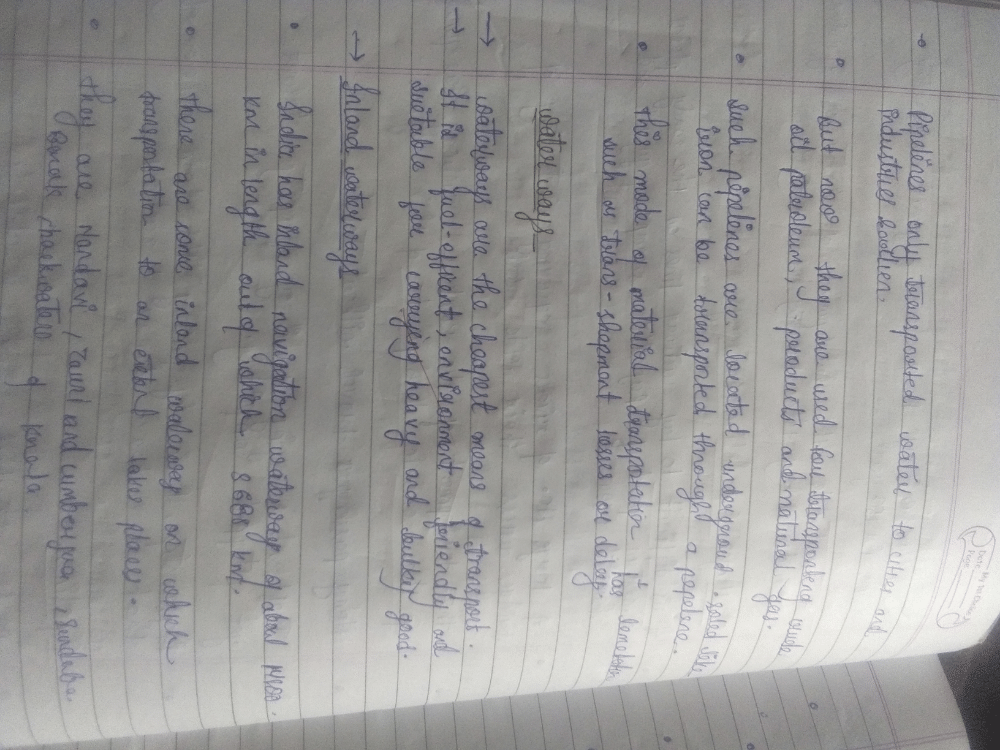 Pipelines only transported water to cities and
industies earlier.
But now they are used for transporting crude
oil, petroleum, products and natural gas.
Such pipelines are located underground. solid like
iron can be transported through a pipeline.
This mode of material transportation is has
such as trans-shipment losses or delays.
water ways
→ waterways are the cheapest means of transport.
→ It is fuel-efficient, environment friendly and
suitable for carrying heavy and bulky good.
→ Inland waterways
India has inland navigation waterways of about 14500.
km in length out of which 5685 km.
there are some inland waterways on which
transportation to an extent takes places.
they are Mandavi, and cumberjua, Sundarba.
of kerala